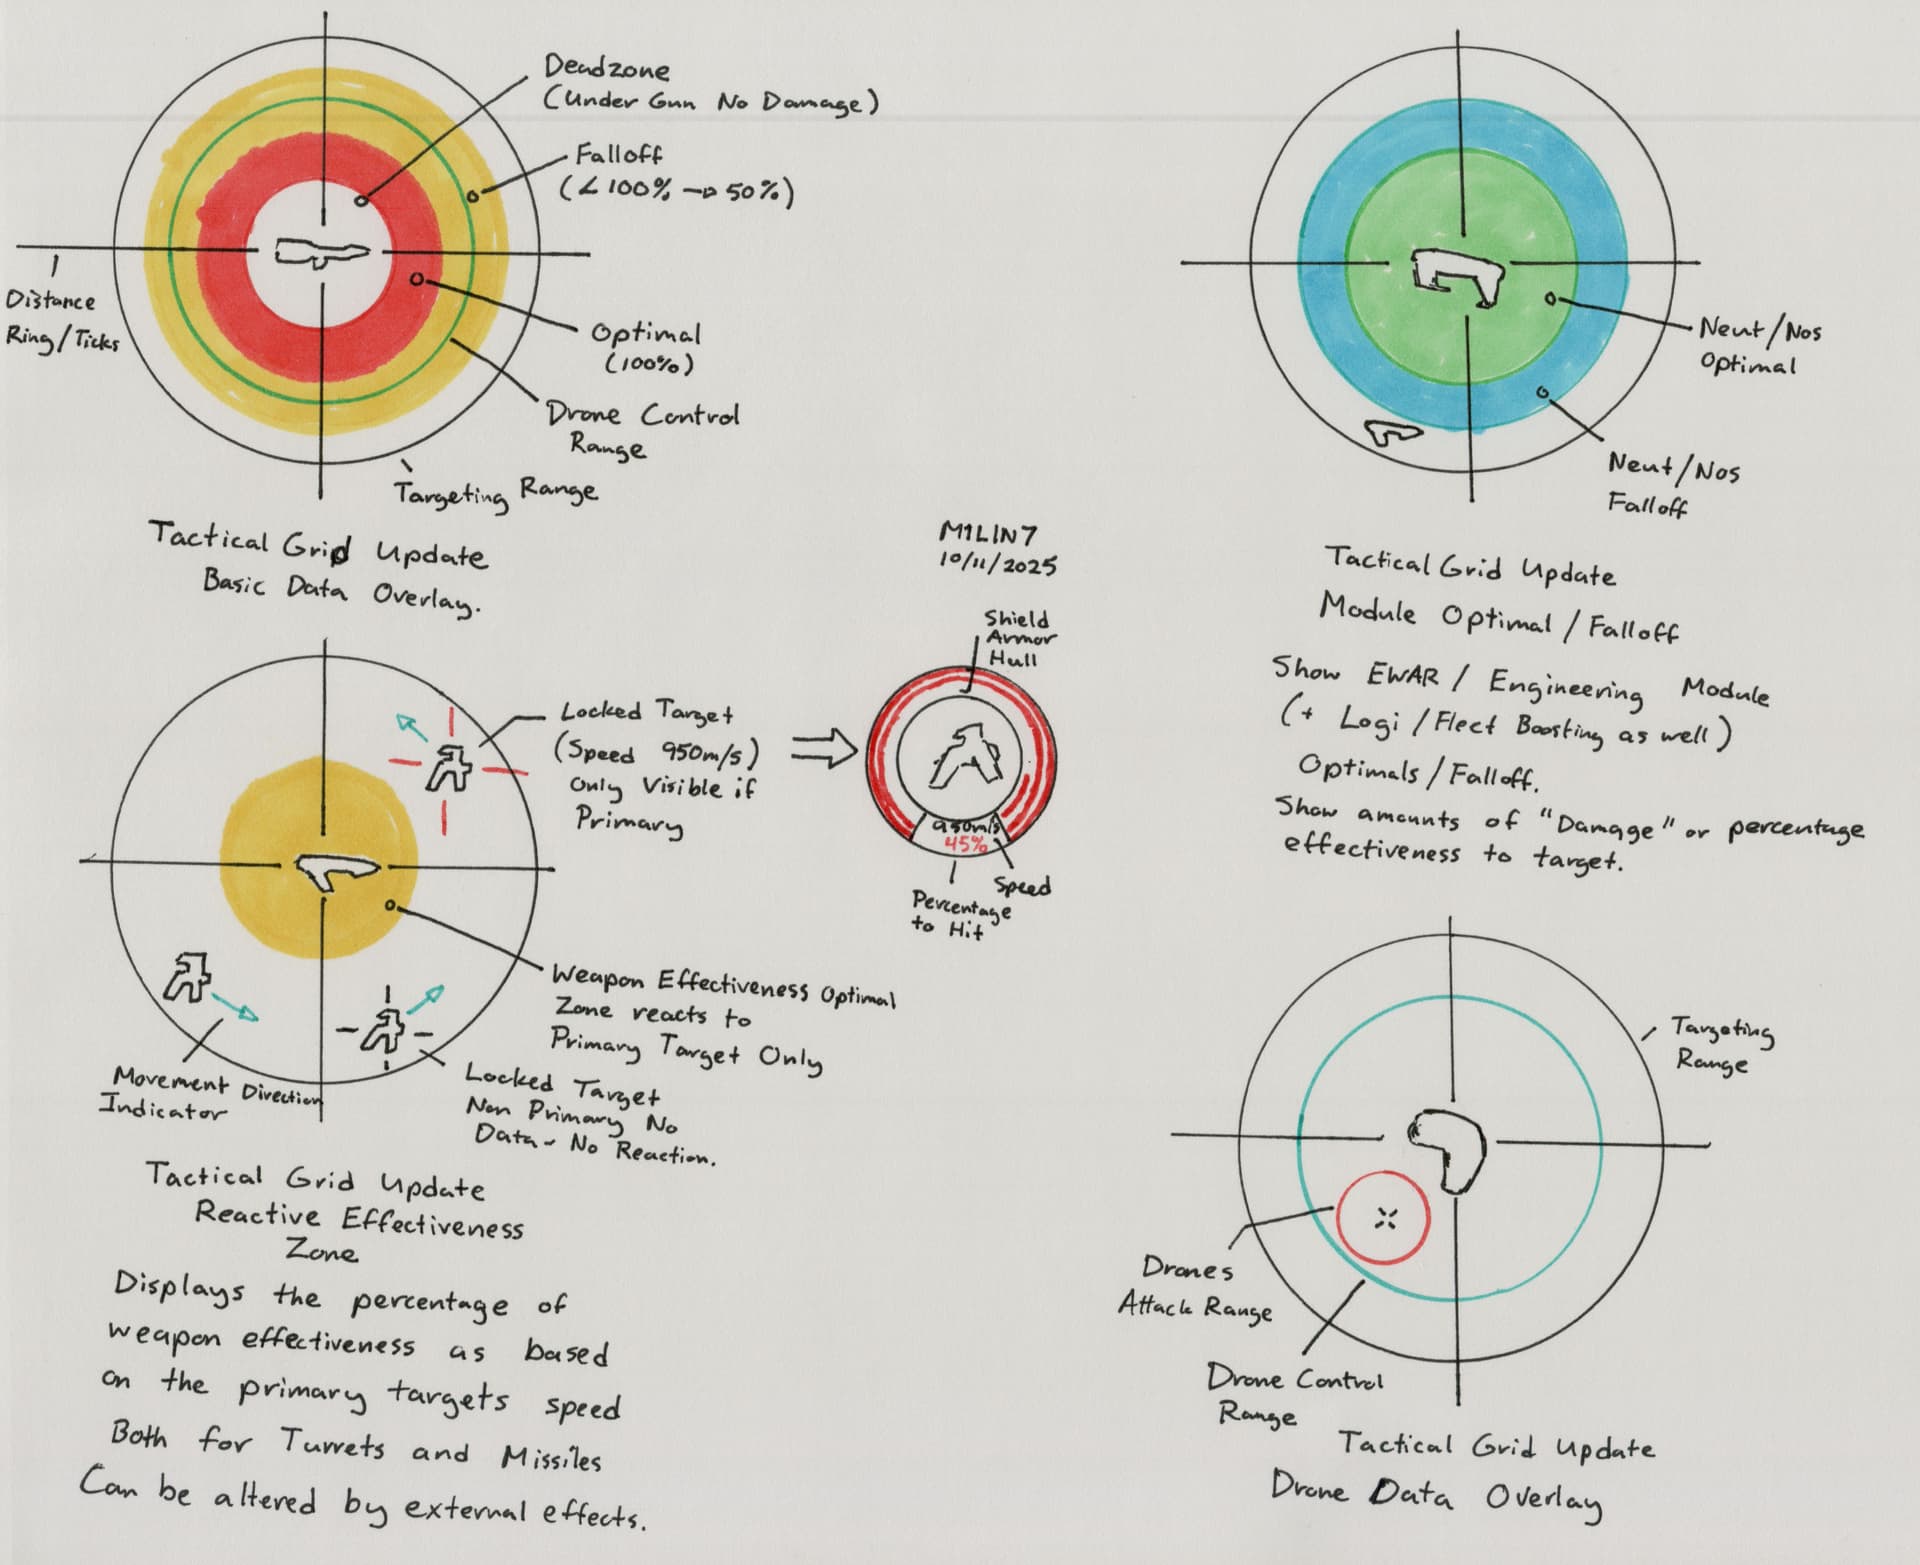 Deadzone
(Under Gun No Damage)
Falloff
(<100% → 50%)
Distance
Ring/Ticks
Optimal
(100%)
Drone Control
Range
Targeting Range
Tactical Grid Update
Basic Data Overlay.
Neut/Nos
Optimal
Neut/Nos
Falloff
Tactical Grid Update
Module Optimal / Falloff
Show EWAR / Engineering Module
(+ Logi / Fleet Boosting as well)
Optimals/Falloff.
Show amounts of "Damage" or percentage
effectiveness to target.
M1LIN7
10/11/2025
Shield
Armor
Hull
950m/s
45%
Speed
Percentage
to Hit
Locked Target
(Speed 950m/s)
Only Visible if
Primary
Weapon Effectiveness Optimal
Zone reacts to
Primary Target Only
Locked Target
Non Primary No
Data - No Reaction.
Movement Direction
Indicator
Tactical Grid Update
Reactive Effectiveness
Zone
Displays the percentage of
weapon effectiveness as based
on the primary targets speed
Both for Turrets and Missiles
Can be altered by external effects.
Targeting
Range
Drones
Attack Range
Drone Control
Range
Tactical Grid Update
Drone Data Overlay